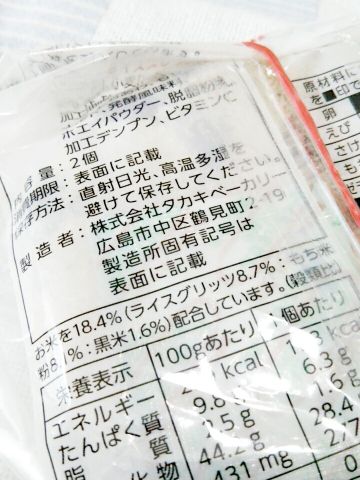 加工油脂、発酵風味料
ホエイパウダー、脱脂粉乳
加工デンプン、ビタミンC
容量：2個
消費期限：表面に記載
保存方法：直射日光、高温多湿を
避けて保存してください。
製造者：株式会社タカキベーカリー
広島市中区鶴見町2-19
製造所固有記号は
表面に記載
お米を18.4%(ライスグリッツ8.7%：もち米
粉8.1%：黒米1.6%)配合しています。(穀類比)
栄養表示 100gあたり 1個あたり
エネルギー kcal
たんぱく質 9.8 6.3 g
脂 .5 g 1.6
化物 44.2 g 28.4
431 mg 2.7
原材料に
を■印で
卵
えび
さけ
もも